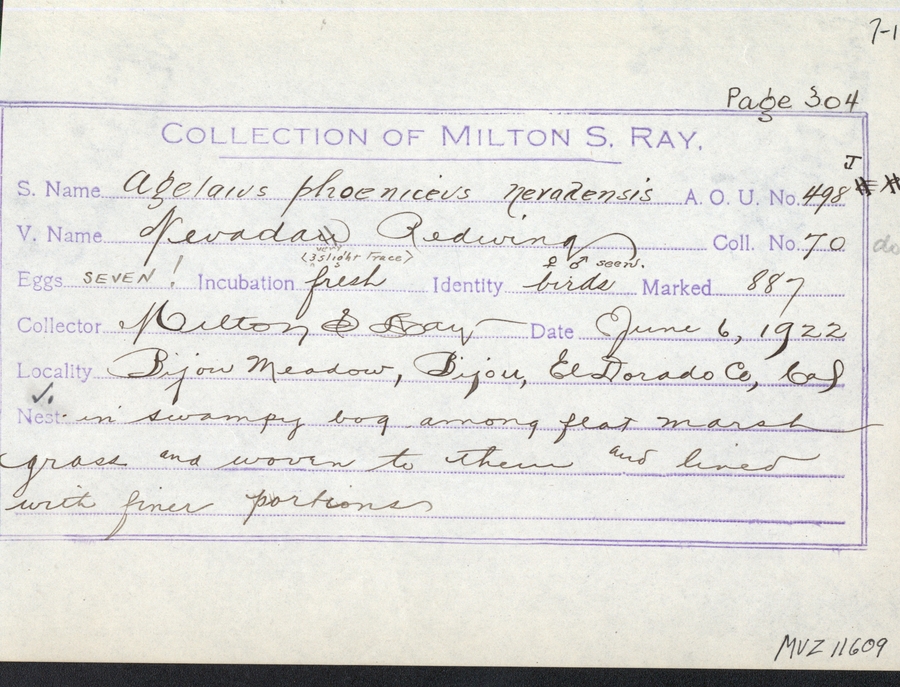 7-1
Page 304
COLLECTION OF MILTON S. RAY.
J
S. Name Agelaius phoeniceus nevadensis A. O. U. No. 498
V. Name Nevadan Redwing Coll. No. 70 do
(3 very slight trace) ♀ ♂ seen.
Eggs SEVEN! Incubation fresh Identity birds Marked 887
Collector Milton S Ray Date June 6, 1922
Locality Bijou Meadow, Bijou, El Dorado Co, Cal
Nest in swampy bog among flat marsh
grass and woven to them and lined
with finer portions
MVZ 11609